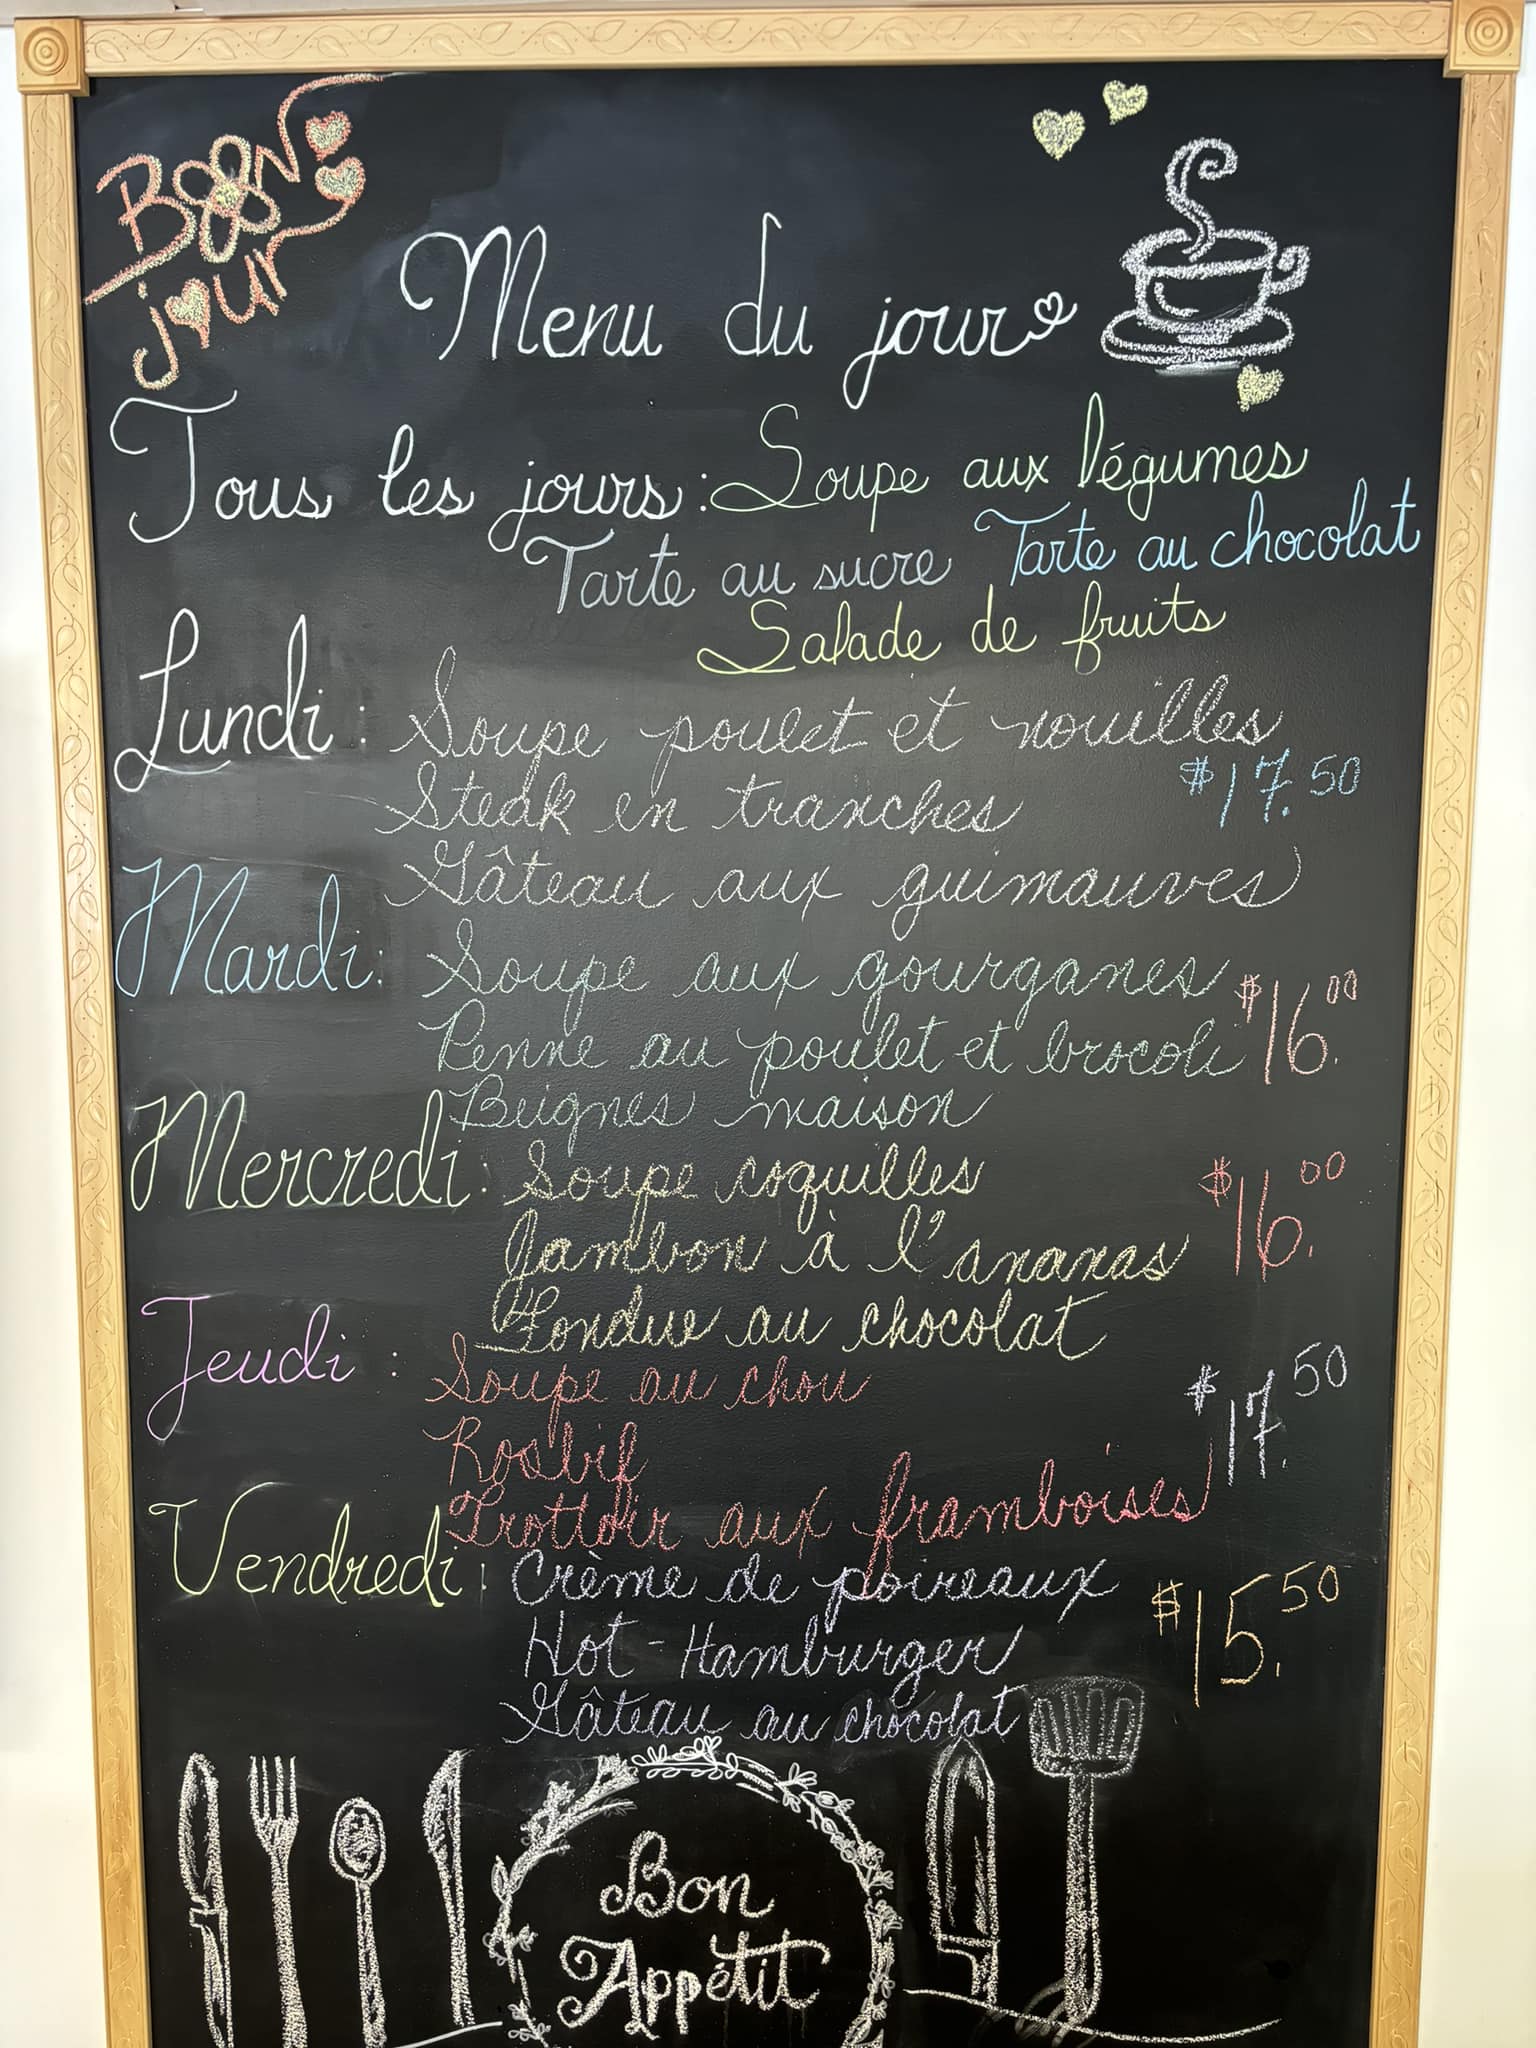 Bon
jour
Menu du jour
Tous les jours : Soupe aux légumes
Tarte au sucre Tarte au chocolat
Salade de fruits
Lundi : Soupe poulet et nouilles
Steak en tranches $17.50
Gâteau aux guimauves
Mardi : Soupe aux gourganes
Penne au poulet et brocoli $16.00
Beignes maison
Mercredi : Soupe coquilles
Jambon à l'ananas $16.00
Fondue au chocolat
Jeudi : Soupe au chou
Rosbif $17.50
Trottoir aux framboises
Vendredi : Crème de poireaux
Hot-Hamburger $15.50
Gâteau au chocolat
Bon
Appétit